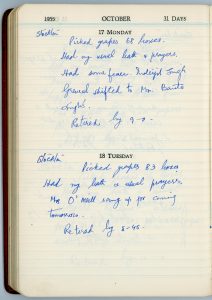 1955 OCTOBER 31 DAYS
17 MONDAY
Stockton Picked grapes 68 boxes.
Had my usual bath & prayers.
Had some fever. Inderjit Singh
Grewal shifted to Mr.
Retired by 9-0-
18 TUESDAY
Stockton
Picked grapes 83 boxes
Had my bath & usual prayers.
Mr O' rang up for coming
tomorrow.
Retired by 8-45-